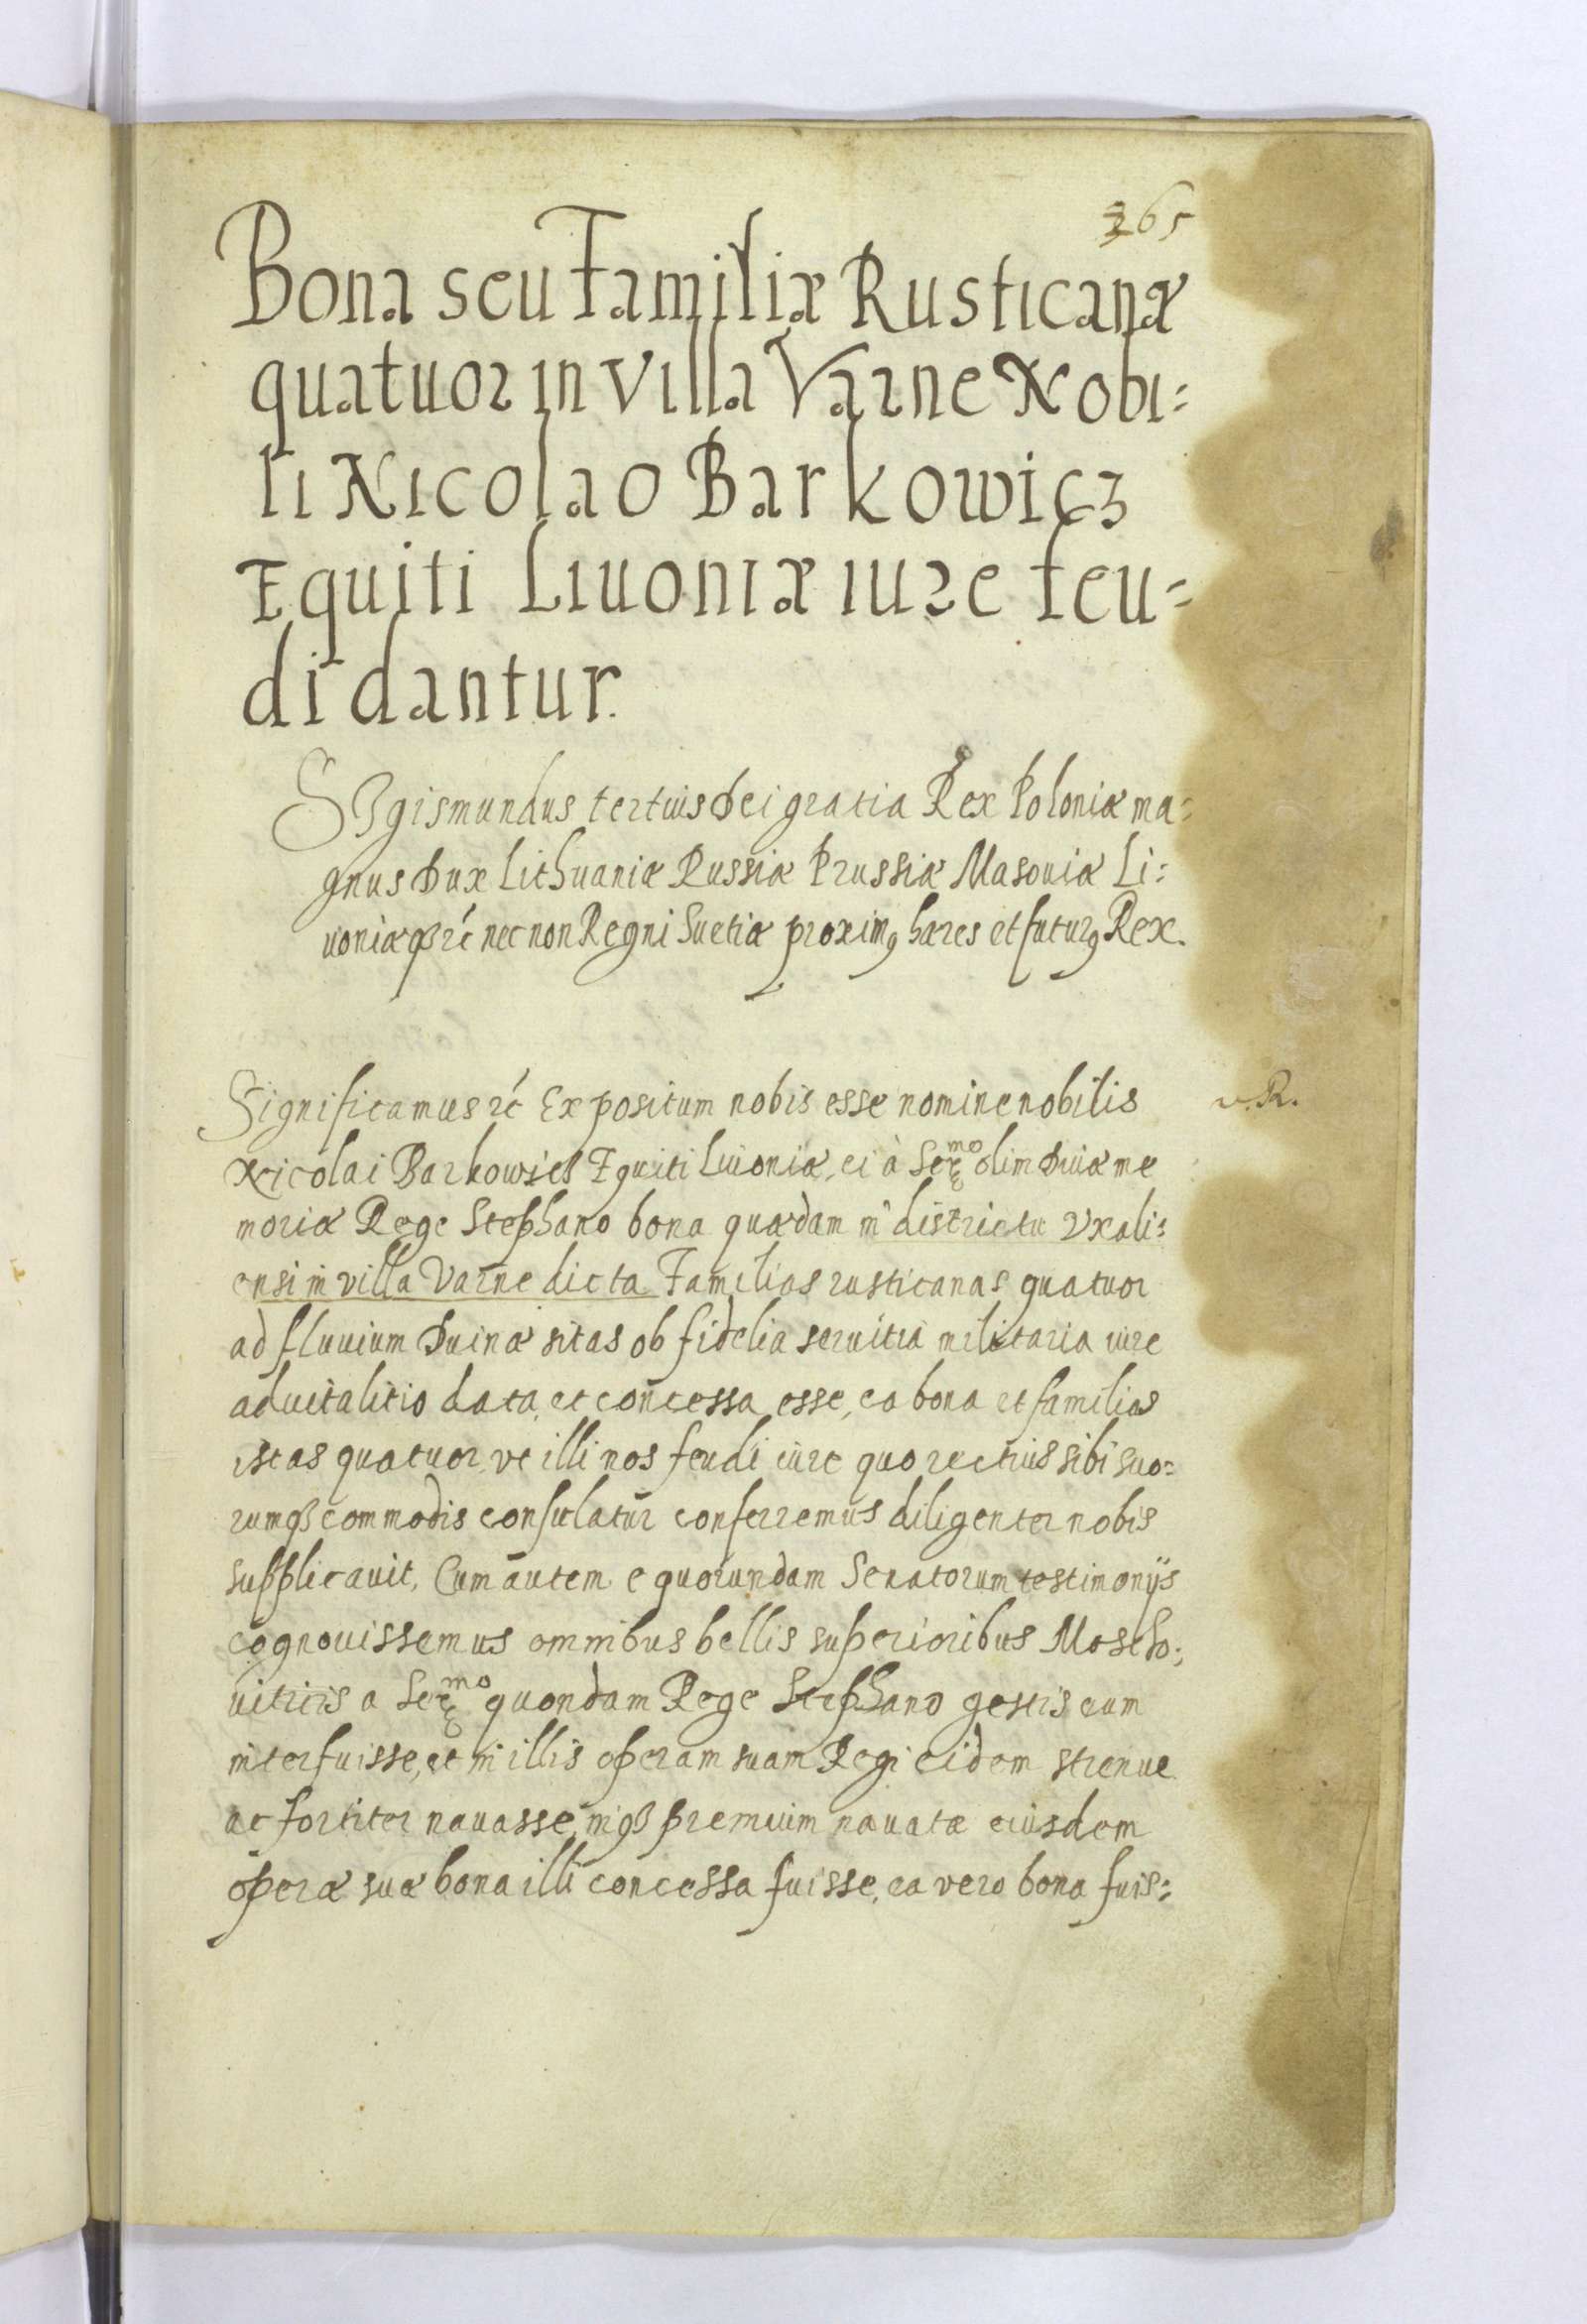 365
Bona seu Familiæ Rusticanæ
quatuor in villa Varne Nobi=
li Nicolao Barkowicz
Equiti Liuoniæ iure feu=
di dantur.
Sygismundus tertius Dei gratia Rex Poloniæ ma=
gnus Dux Lithuaniæ Russiæ Prussiæ Masouiæ Li=
uoniæq3 rc nec non Regni Suetiæ proximꝰ hæres et futurꝰ Rex.
Significamus rc Expositum nobis esse nomine nobilis
v. R.
Nicolai Barkowicz Equiti Liuoniæ, ei à Ser^mo olim Diuæ me
moriæ Rege Stephano bona quædam in districtu Vxali=
ensi in villa Varne dicta Familias rusticanas quatuor
ad fluuium Duinæ sitas ob fidelia seruitia militaria iure
aduitalitio data, et concessa esse, ea bona et familias
istas quatuor, vt illi nos feudi iure quo rectius sibi suo=
rumq3 commodis consulatur conferremus diligenter nobis
supplicauit, Cum autem e quorundam Senatorum testimonijs
cognouissemus omnibus bellis superioribus Moscho=
uiticis a Ser^mo quondam Rege Stephano gestis eum
interfuisse, et in illis operam suam Regi eidem strenue
ac fortiter nauasse, inq3 premium nauatæ eiusdem
operæ suæ bona illi concessa fuisse, ea vero bona fuis=